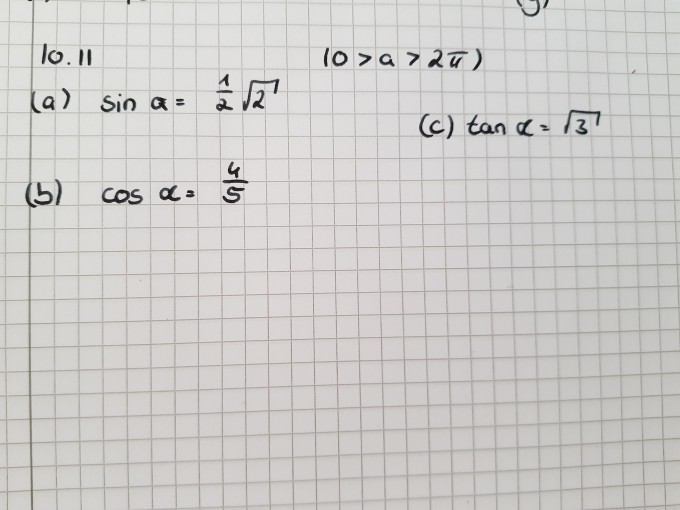 10.11 (0 > a > 2π)
(a) sin α = 1/2 √2
(c) tan α = √3
(b) cos α = 4/5